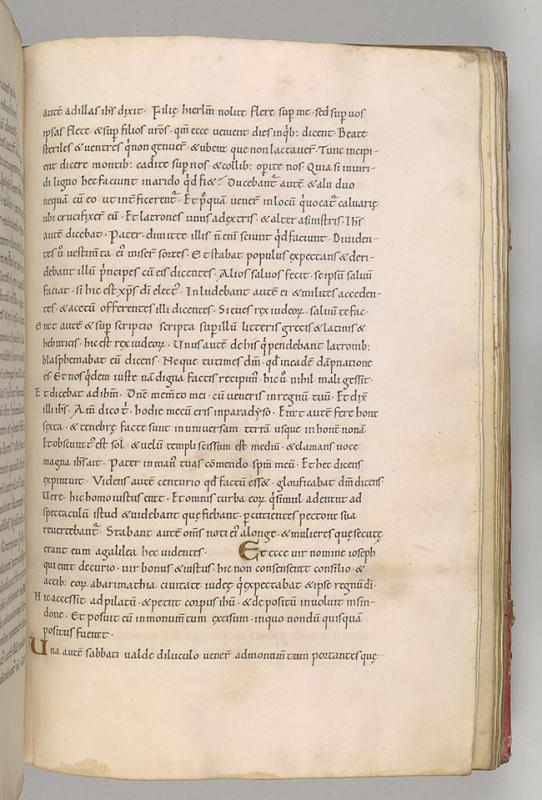 autē ad illas ihs dixit. Filię hierlm̄ nolite flere sup me. sed sup vos
ipsas flete & sup filios vr̄os. qm̄ ecce venient dies in q̇b: dicent. Beate
steriles & ventres q̇ non genuer̄ & ubera que non lactauer̄. Tunc incipi-
ent dicere montib: cadite sup nos & collib: opite nos. Quia si in uiri-
di ligno hec faciunt in arido q̇d fi&? Ducebant᷑ autē & alii duo
nequā cū eo. ut int̄ficerent᷑. Et pꝰquā vener̄ in locū q̇ uocat᷑ caluarię
ubi crucifixer̄ eū. Et latrones unus a dextris. & alter a sinistris. Ihs
autē dicebat. Pater dimitte illis n̄ eni̅ sciunt q̇d faciunt. Diuiden-
tes u̇ uestim̄ta eiꝰ miser̄ sortes. Et stabat populus expectans & deri-
debant illū ṗncipes cū eis dicentes. Alios saluos fecit. se ipsū saluū
faciat. si hic est xp̄s dī electꝰ. Inludebant autē ei & milites acceden-
tes. & acetū offerentes illi dicentes. Si tu es rex iudeoꝝ. saluū te fac.
Erat autē & sup scriptio scripta sup illū litteris grecis & latinis &
hebraicis. hic est rex iudeoꝝ. Unus autē de his q̇ pendebant latronib:
blasphemabat eū dicens. Neque tu times dm̄. qd̄ in eadē dāpnatione
es. Et nos q̇dem iuste nā digna factis recipim̄. hic u̇ nihil mali gessit.
Et dicebat ad ihm̄. Dn̄e mem̄to mei. cū veneris in regnū tuū. Et dix̄
illi ihs. Am̄ dico t̄. hodie mecū eris in paradyso. Erat autē fere hora
sexta. & tenebrę facte sunt in uniuersam terrā usque in horā nonā
Et obscuratꝰ est sol. & velū templi scissum est mediū. & clamans uoce
magna ihs ait. Pater in manꝰ tuas cōmendo spm̄ meū. Et hec dicens
expirauit. Videns autē centurio qd̄ factū ess&. glorificabat dm̄ dicens
Uere hic homo iustus erat. Et omnis turba eoꝝ q̇ simul aderant ad
spectaculū istud & uidebant que fiebant. p̄cutientes pectora sua
reuertebant᷑. Stabant autē om̄s noti eiꝰ a longe. & mulieres que secutę
erant eum a galilea hec videntes. Et ecce vir nomine ioseph
qui erat decurio. vir bonus & iustus. hic non consenserat consilio &
actib: eoꝝ ab arimathia ciuitate iudeę q̇ expectabat & ipse regnū di.
Hic accessit ad pilatū. & petiit corpus ihū. & depositū inuoluit in sin-
done. Et posuit eū in monum̄tum excisum. in quo nondū quisquā
positus fuerat.
Una autē sabbati valde diluculo vener̄ ad monum̄tum portantes quę